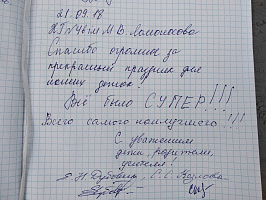 21.09.18
им М.В. Ломоносова
Спасибо огромное за
прекрасный праздник для
наших деток!
Всё было СУПЕР!!!
Всего самого наилучшего!!!
С уважением
дети, родители,
учителя!
Е.Н. С.С. Козлова